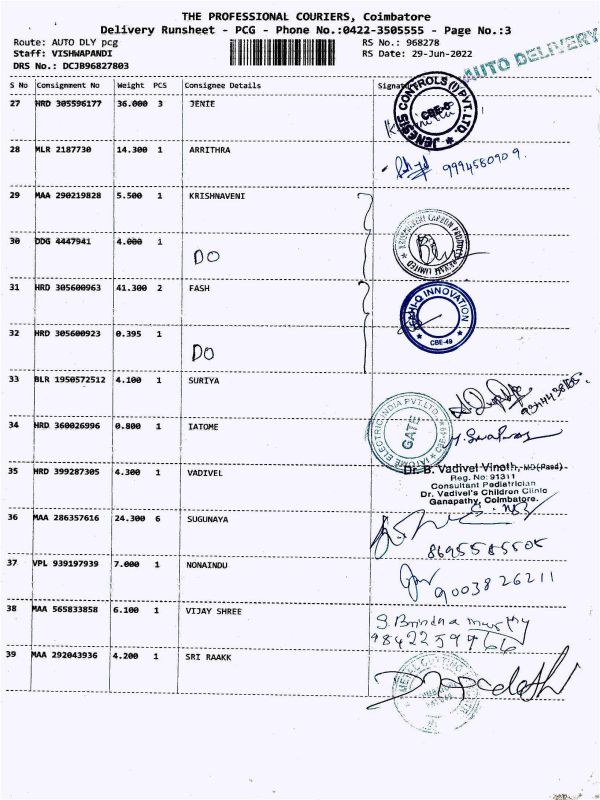 THE PROFESSIONAL COURIERS, Coimbatore
Delivery Runsheet - PCG - Phone No.:0422-3505555 - Page No.:3
Route: AUTO DLY pcg RS No.: 968278
Staff: VISHWAPANDI RS Date: 29-Jun-2022
DRS No.: DCJB96827803
AUTO DELIVERY
S No Consignment No Weight PCS Consignee Details Signat
27 HRD 305596177 36.000 3 JENIE
JENESIS CONTROLS (I) PVT. LTD. CBE-6
28 MLR 2187730 14.300 1 ARRITHRA
9994580909.
29 MAA 290219828 5.500 1 KRISHNAVENI
30 DDG 4447941 4.000 1 DO
31 HRD 305600963 41.300 2 FASH
INNOVATION CBE-49
32 HRD 305600923 0.395 1 DO
33 BLR 1950572512 4.100 1 SURIYA
34 HRD 360026996 0.800 1 IATOME
IATOME ELECTRIC INDIA PVT. LTD. GATE
35 HRD 399287305 4.300 1 VADIVEL
Dr. B. Vadivel Vinoth, MD (Paed)
Reg. No: 91311
Consultant Pediatrician
Dr. Vadivel's Children Clinic
Ganapathy, Coimbatore.
36 MAA 286357616 24.300 6 SUGUNAYA
8695585505
37 VPL 939197939 7.000 1 NONAINDU
9003826211
38 MAA 565833858 6.100 1 VIJAY SHREE
S. Brindha murthy
9842259966
39 MAA 292043936 4.200 1 SRI RAAKK